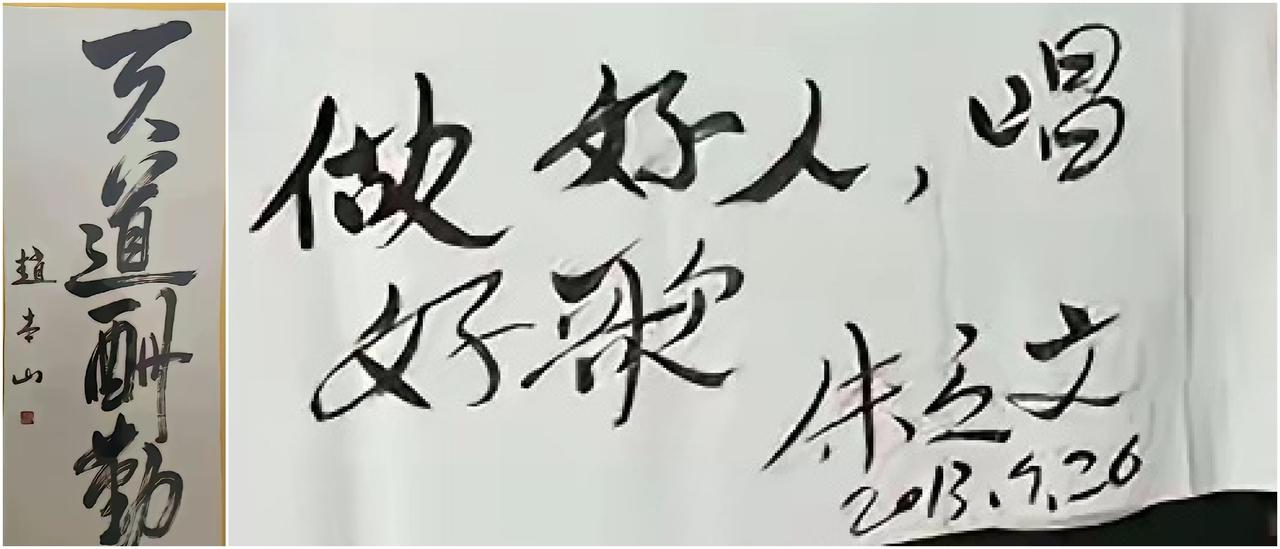 天道酬勤
趙本山
做好人，唱
好歌
朱之文